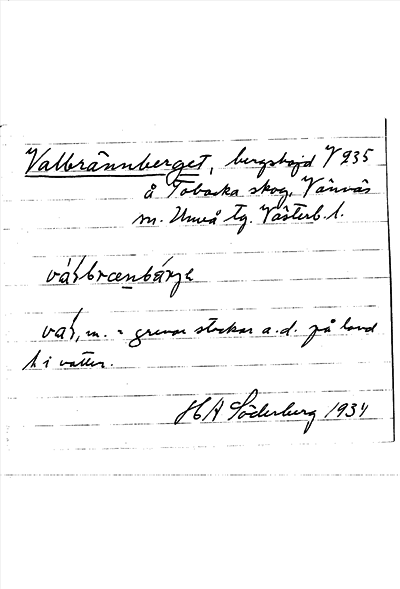 Valbrännberget, bergshöjd V 235
å Tobacka skog, Vännäs
m. Umeå tg. Västerb. l.
vaɫ, m. = grenar stockar a.d. på land
l. i vatten.
HA Söderberg 1934